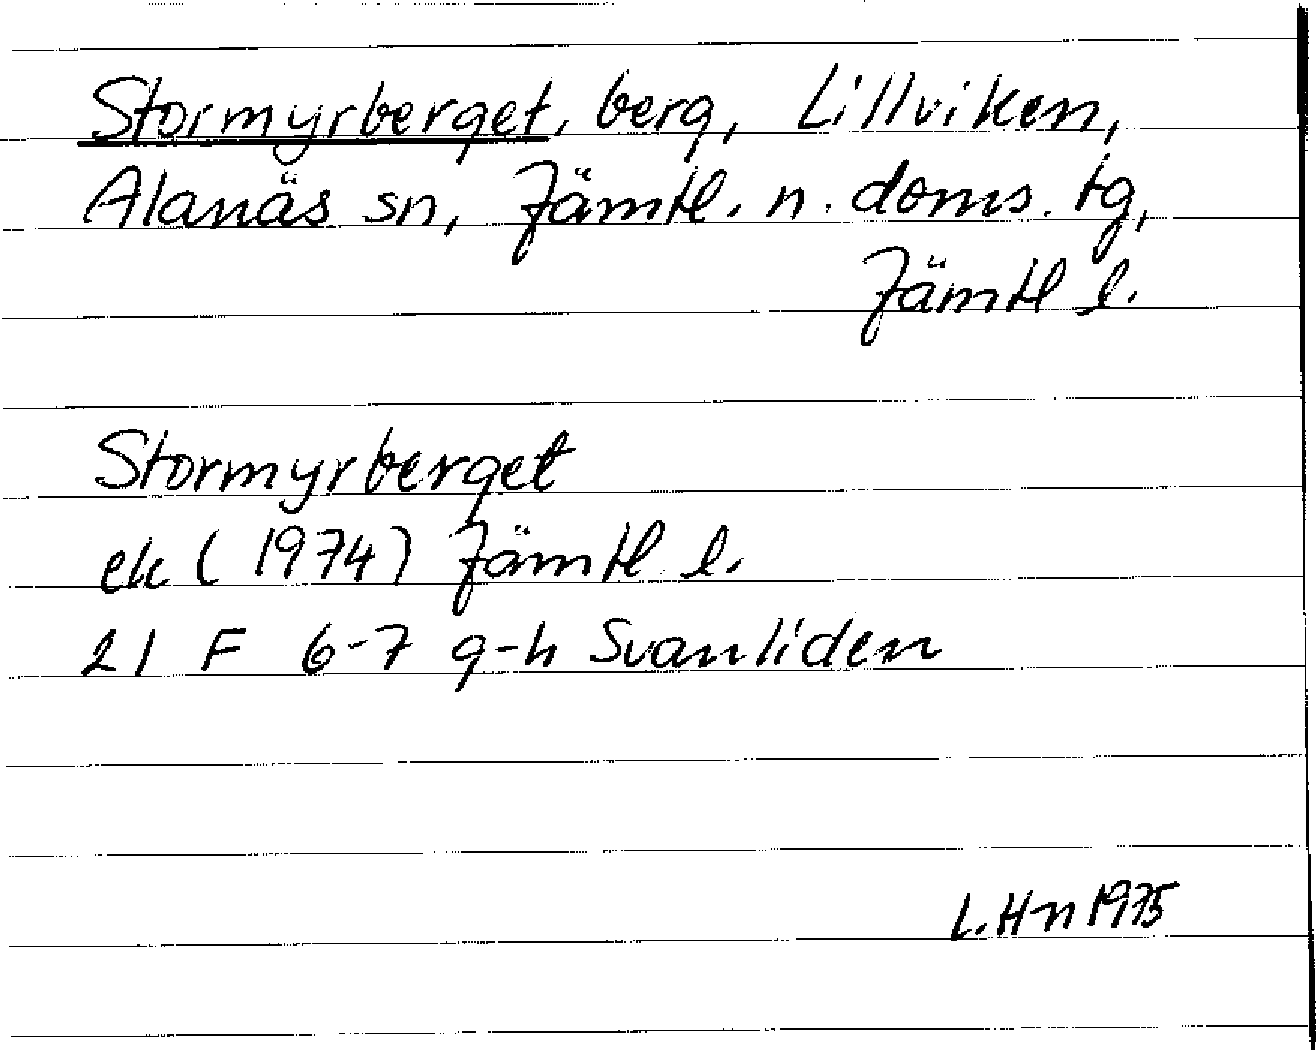 Stormyrberget, berg, Lillviken,
Alanäs sn, Jämtl. n. doms. tg,
Jämtl l.
Stormyrberget
ek (1974) Jämtl. l.
21 F 6-7 g-h Svanliden
L. Hn 1975